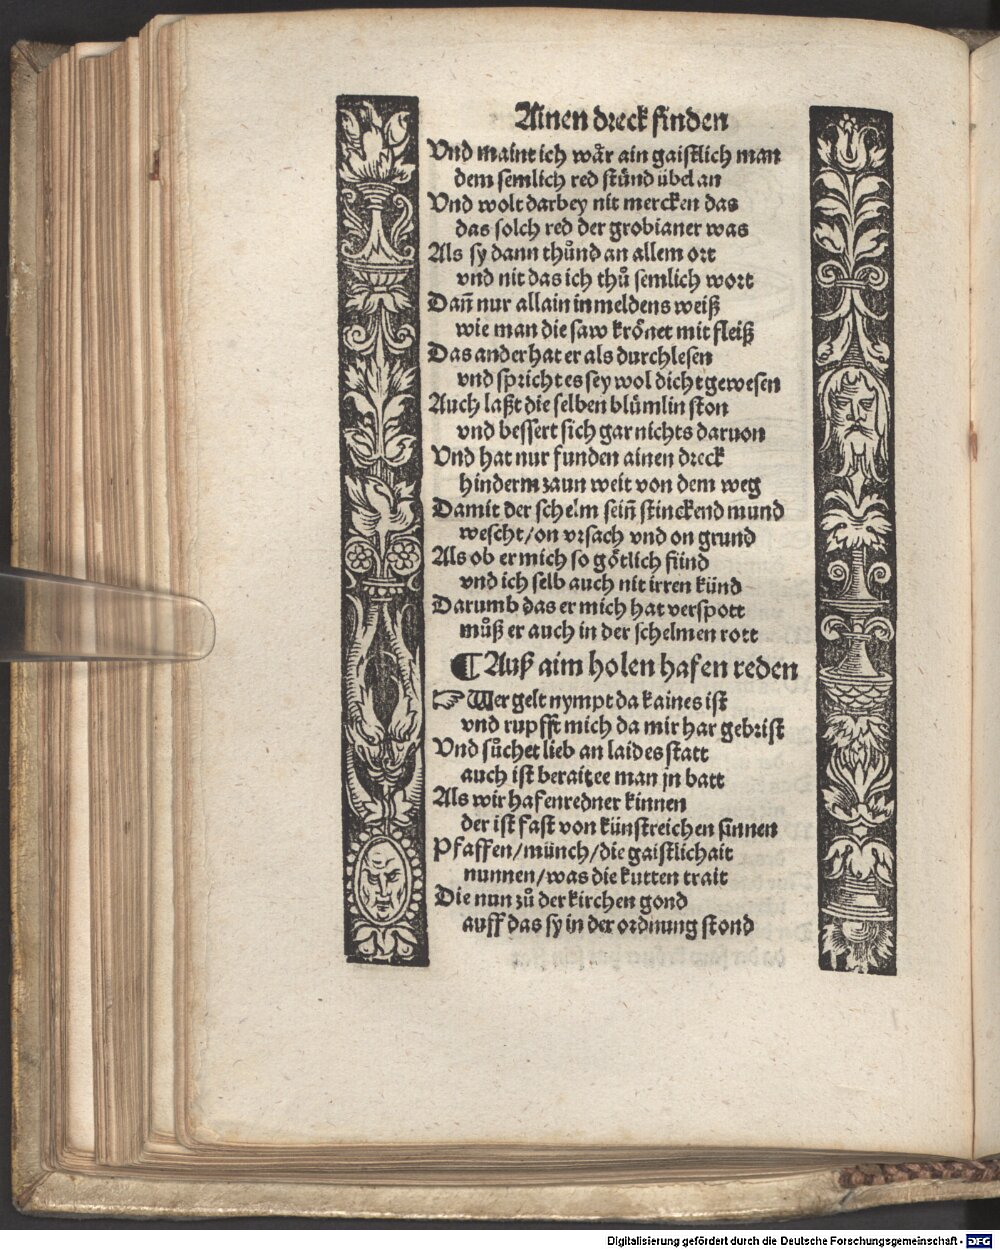 Ainen dreck finden
Vnd maint ich wår ain gaistlich man
dem semlich red stůnd übel an
Vnd wolt darbey nit mercken das
das solch red der grobianer was
Als sy dann thůnd an allem ort
vnd nit das ich thů semlich wort
Dañ nur allain in meldens weiß
wie man die saw krönet mit fleiß
Das ander hat er als durchlesen
vnd spricht es sey wol dicht gewesen
Auch laßt die selben blümlin ston
vnd bessert sich gar nichts daruon
Vnd hat nur funden ainen dreck
hinderm zaun weit von dem weg
Damit der schelm seiñ stinckend mund
wescht/on vrsach vnd on grund
Als ob er mich so götlich fünd
vnd ich selb auch nit irren künd
Darumb das er mich hat verspott
můß er auch in der schelmen rott
¶ Auß aim holen hafen reden
☞ Wer gelt nympt da kaines ist
vnd rupfft mich da mir har gebrist
Vnd sůchet lieb an laides statt
auch ist beraitee man jn batt
Als wir hafenredner kinnen
der ist fast von künstreichen sinnen
Pfaffen/münch/die gaistlichait
nunnen/was die kutten trait
Die nun zů der kirchen gond
auff das sy in der ordnung stond
Digitalisierung gefördert durch die Deutsche Forschungsgemeinschaft - DFG